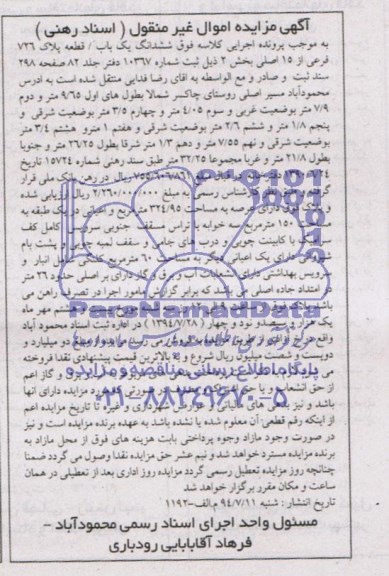 آگهی مزایده اموال غیر منقول ( اسناد رهنی )
به موجب پرونده اجرایی کلاسه فوق ششدانگ یک باب / قطعه پلاک ۷۲۶
فرعی از ۱۵ اصلی بخش ۲ ذیل ثبت شماره ۱۰۳۶۷ دفتر جلد ۸۲ صفحه ۲۹۸
سند ثبت و صادر و مع الواسطه به اقای رضا فدایی منتقل شده است به ادرس
محمودآباد مسیر اصلی روستای چاکسر شمالا بطول های اول ۹/۶۵ متر و دوم
۷/۹ متر بوضعیت غربی و سوم ۴/۰۵ متر و چهارم ۳/۵ متر بوضعیت شرقی و
پنجم ۱/۸ متر و ششم ۲/۶ متر بوضعیت شرقی و هفتم ۱ مترو هشتم ۳/۴ متر
بوضعیت شرقی و نهم ۷/۵۵ متر و دهم ۱/۳ متر شرقا بطول ۲۶/۲۵ متر و جنوبا
بطول ۲۱/۸ متر و غربا مجموعا ۳۲/۲۵ متر طبق سند رهنی شماره ۱۵۷۲۴ تاریخ
ریال در رهن بانک ملی قرار
گرفته و طبق نظر کارشناس رسمی به مبلغ ۲/۲۶۰/۰۰۰/۰۰۰ ریال ارزیابی شده
فوق دارای عرصه به مساحت ۳۲۴/۹۵ مترمربع و اعیانی در یک طبقه به
مساحت ۱۵۰ مترمربع سه خوابه با تراس مسقف جنوبی سرویس کامل کف
سرامیک با کابینت چوبی و درب های چوبی و سقف لمبه چوبی و پشت بام
دارای یک اعیانی دیگر به مساحت ۶۰ مترمربع انبار و
سرویس بهداشتی دارای انشعابات آب و برق و گاز دارای بر اصلی حدود ۲۶ متر
در امتداد جاده اصلی می باشد که برابر گزارش مامور اجرا در تصرف راهن می
باشد پلاک فوق از ساعت ۹ الی ۱۲ مهر ماه
یک هزار و سیصد و نود و چهار ( ۱۳۹۴/۷/۲۸ ) در اداره ثبت اسناد محمود آباد
واقع در از طریق مزایده به فروش می رسد مزایده از مبلغ دو میلیارد و
دویست و شصت میلیون ریال شروع و به بالاترین قیمت پیشنهادی نقدا فروخته
می و گاز اعم
از حق انشعاب و یا حق اشتراک و مصرف در صورتی که مورد مزایده دارای انها
باشد و نیز بدهی های مالیاتی و عوارض شهرداری و غیره تا تاریخ مزایده اعم
از اینکه رقم قطعی آن معلوم شده یا نشده باشد به عهده برنده مزایده است و نیز
در صورت وجود مازاد وجوه پرداختی بابت هزینه های فوق از محل مازاد به
برنده مزایده مسترد خواهد شد و نیم عشر حق مزایده نقدا وصول می گردد ضمنا
چنانچه روز مزایده تعطیل رسمی گردد مزایده روز اداری بعد از تعطیلی در همان
ساعت و مکان مقرر برگزار خواهد شد
تاریخ انتشار: شنبه ۹۴/۷/۱۱ م-الف-۱۱۹۳
مسئول واحد اجرای اسناد رسمی محمودآباد -
فرهاد آقابابایی رودباری
ParsNamadData
پایگاه اطلاع رسانی مناقصه و مزایده
۰۲۱-۸۸۳۴۹۶۷۰-۵